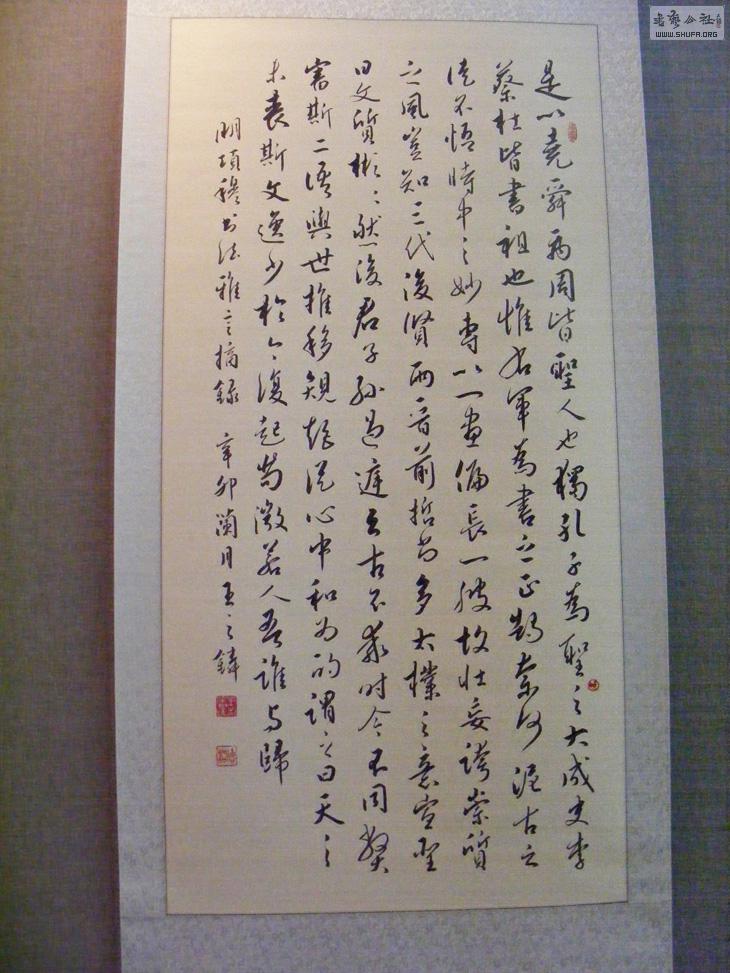 是以堯舜禹周皆聖人也獨孔子為聖之大成史李
蔡杜皆書祖也惟右軍為書之正鵠奈何泥古之
徒不悟時中之妙專以一畫偏長一波故壯妄誇崇質
之風豈知三代後賢兩晉前哲尚多太樸之意宣聖
曰文質彬彬然後君子孫過庭云古不乖時今不同弊
審斯二語與世推移規矩從心中和為的謂之曰天之
未喪斯文逸少於今復起苟微若人吾誰與歸
明項穆書法雅言摘錄 辛卯蘭月王之鏻
書藝公社
WWW.SHUFA.ORG